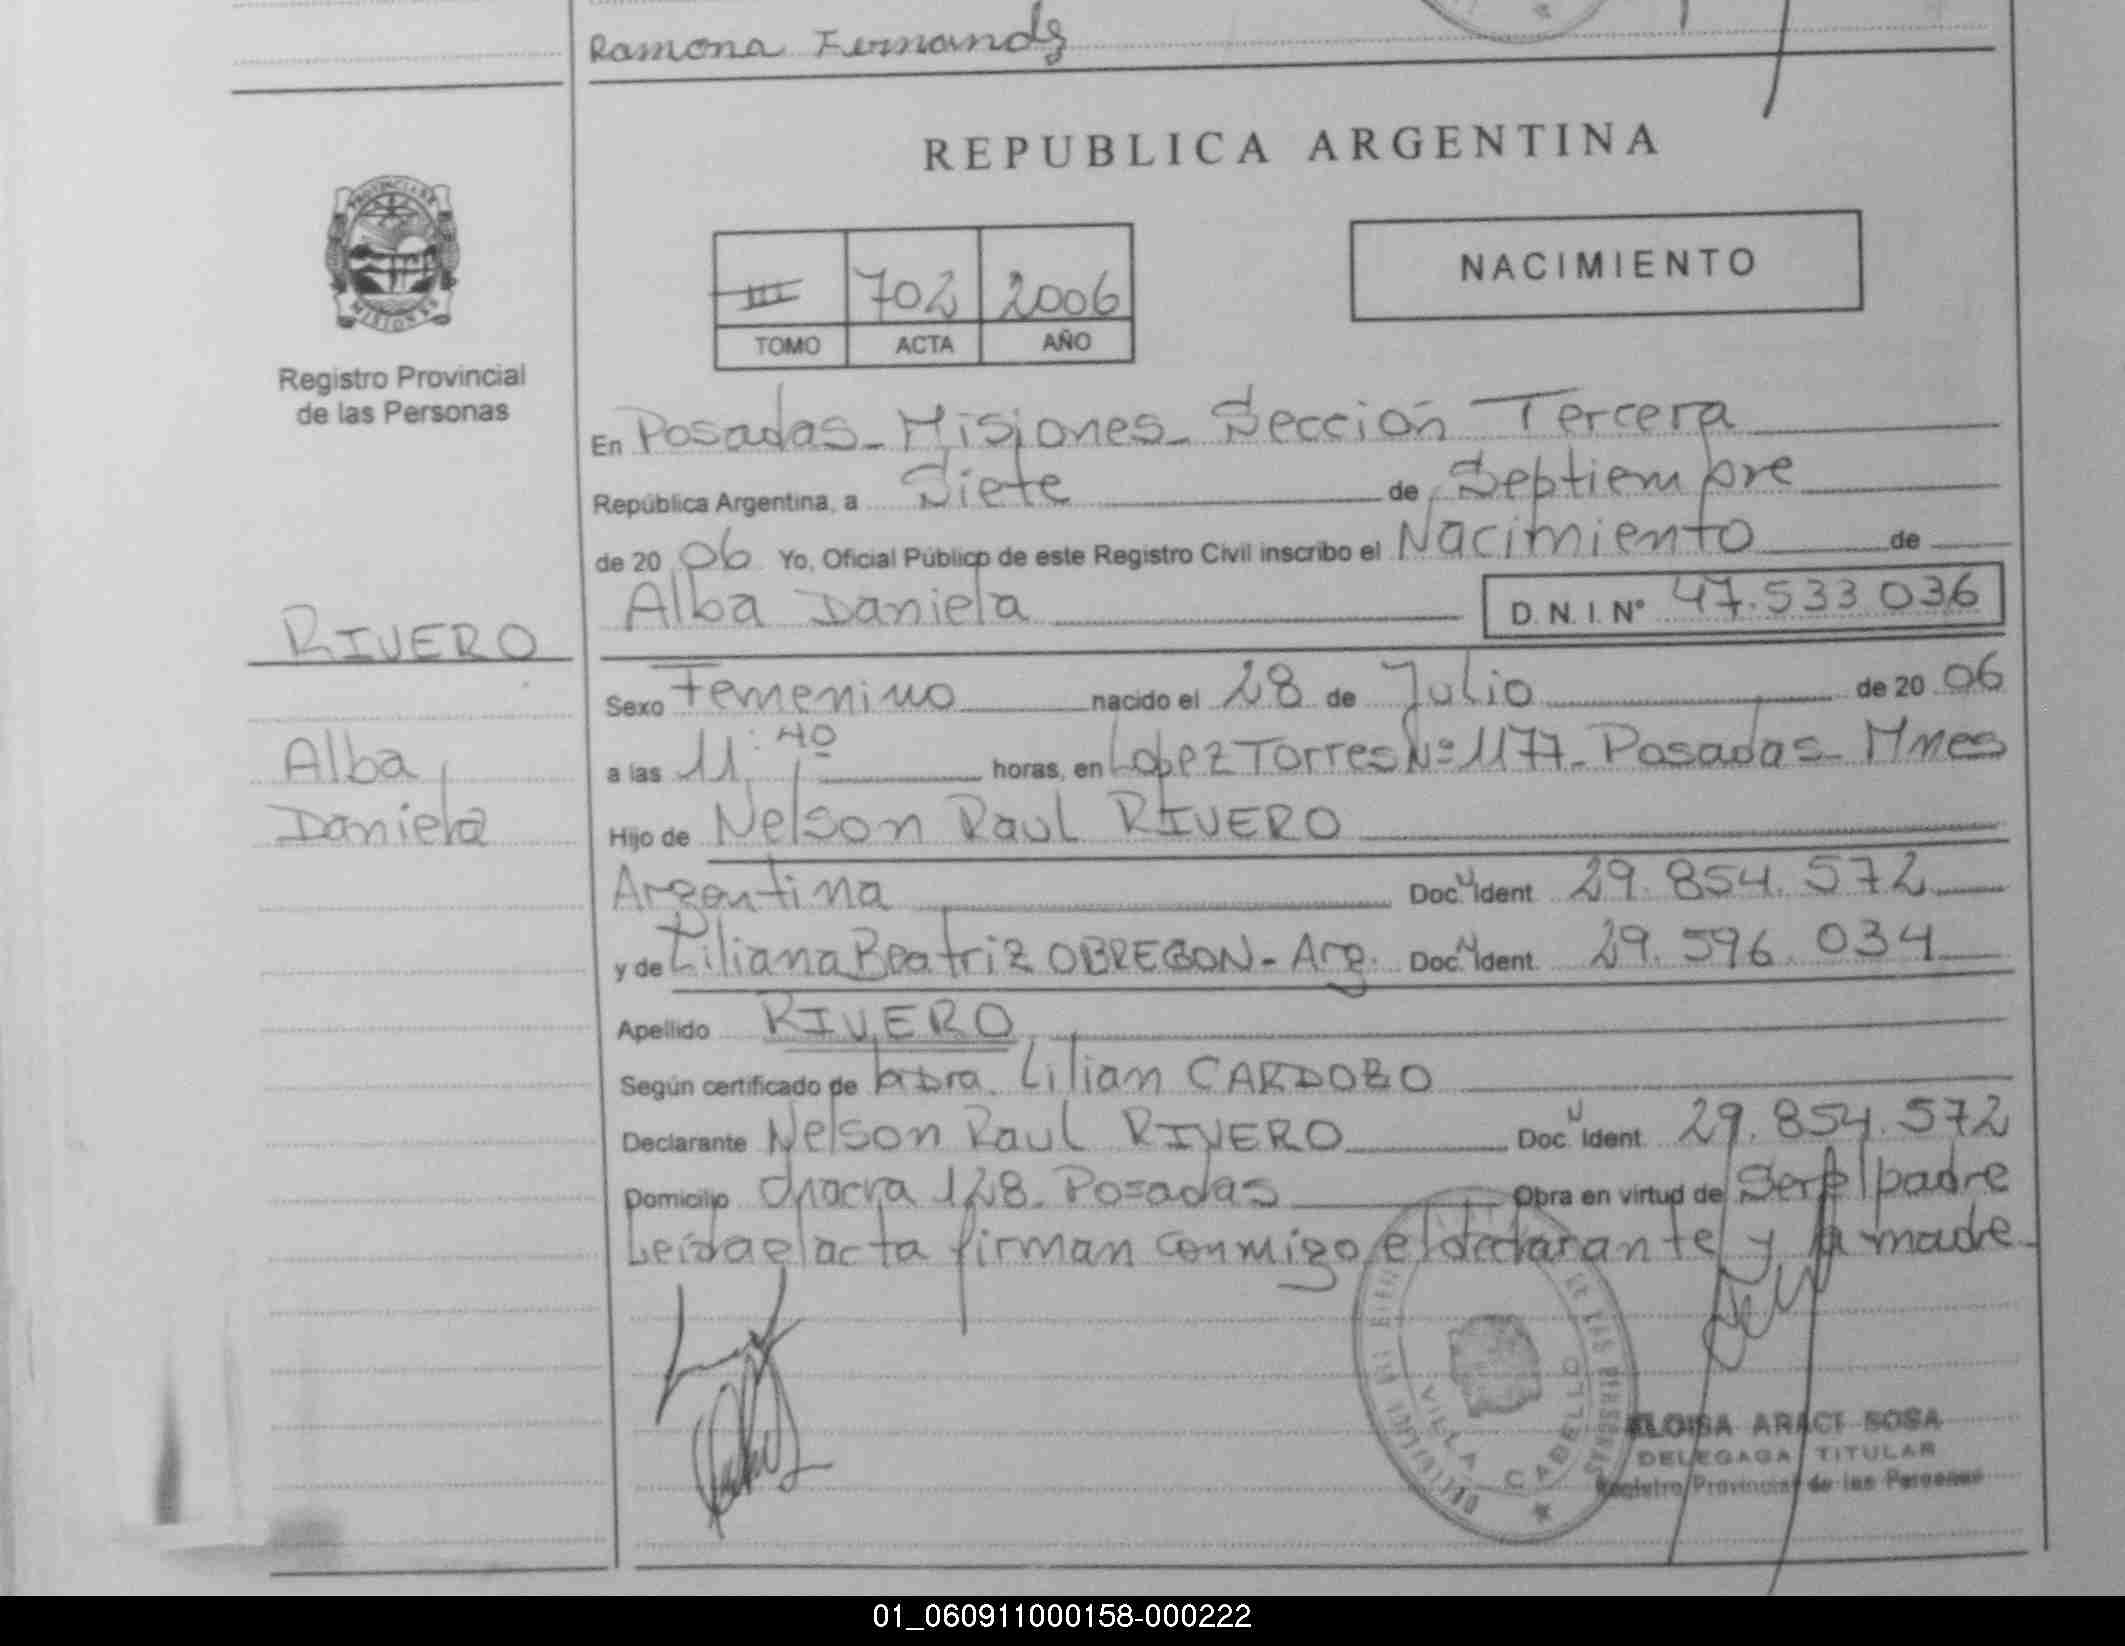 Ramona Fernandz
REPUBLICA ARGENTINA
PROVINCIA DE
MISIONES
Registro Provincial
de las Personas
III 702 2006
TOMO ACTA AÑO
NACIMIENTO
En Posadas - Misiones - Sección Tercera
República Argentina, a Siete de Septiembre
de 20 06 Yo, Oficial Público de este Registro Civil inscribo el Nacimiento de
Alba Daniela D. N. I. Nº 47.533.036
RIVERO
Alba
Daniela
Sexo Femenino nacido el 28 de Julio de 20 06
a las 11:40 horas, en Lopez Torres Nº 1177 - Posadas - Mnes
Hijo de Nelson Raul RIVERO
Argentina Doc. Ident 29.854.572
y de Liliana Beatriz OBREGON - Arg. Doc. Ident 29.596.034
Apellido RIVERO
Según certificado de la Dra. Lilian CARDOZO
Declarante Nelson Raul RIVERO Doc Ident 29.854.572
Domicilio Chacra 128 - Posadas Obra en virtud de Ser el padre
Leída el acta firman conmigo el declarante y la madre.
DE LAS PERSONAS
VILLA CABELLO
ELOISA ARACI SOSA
DELEGADA TITULAR
Registro Provincial de las Personas
01_060911000158-000222